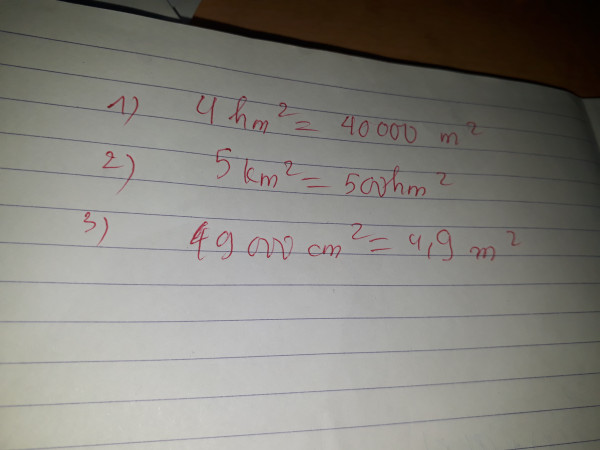 1) 4 hm² = 40000 m²
2) 5 km² = 500hm²
3) 49000 cm² = 4,9 m²